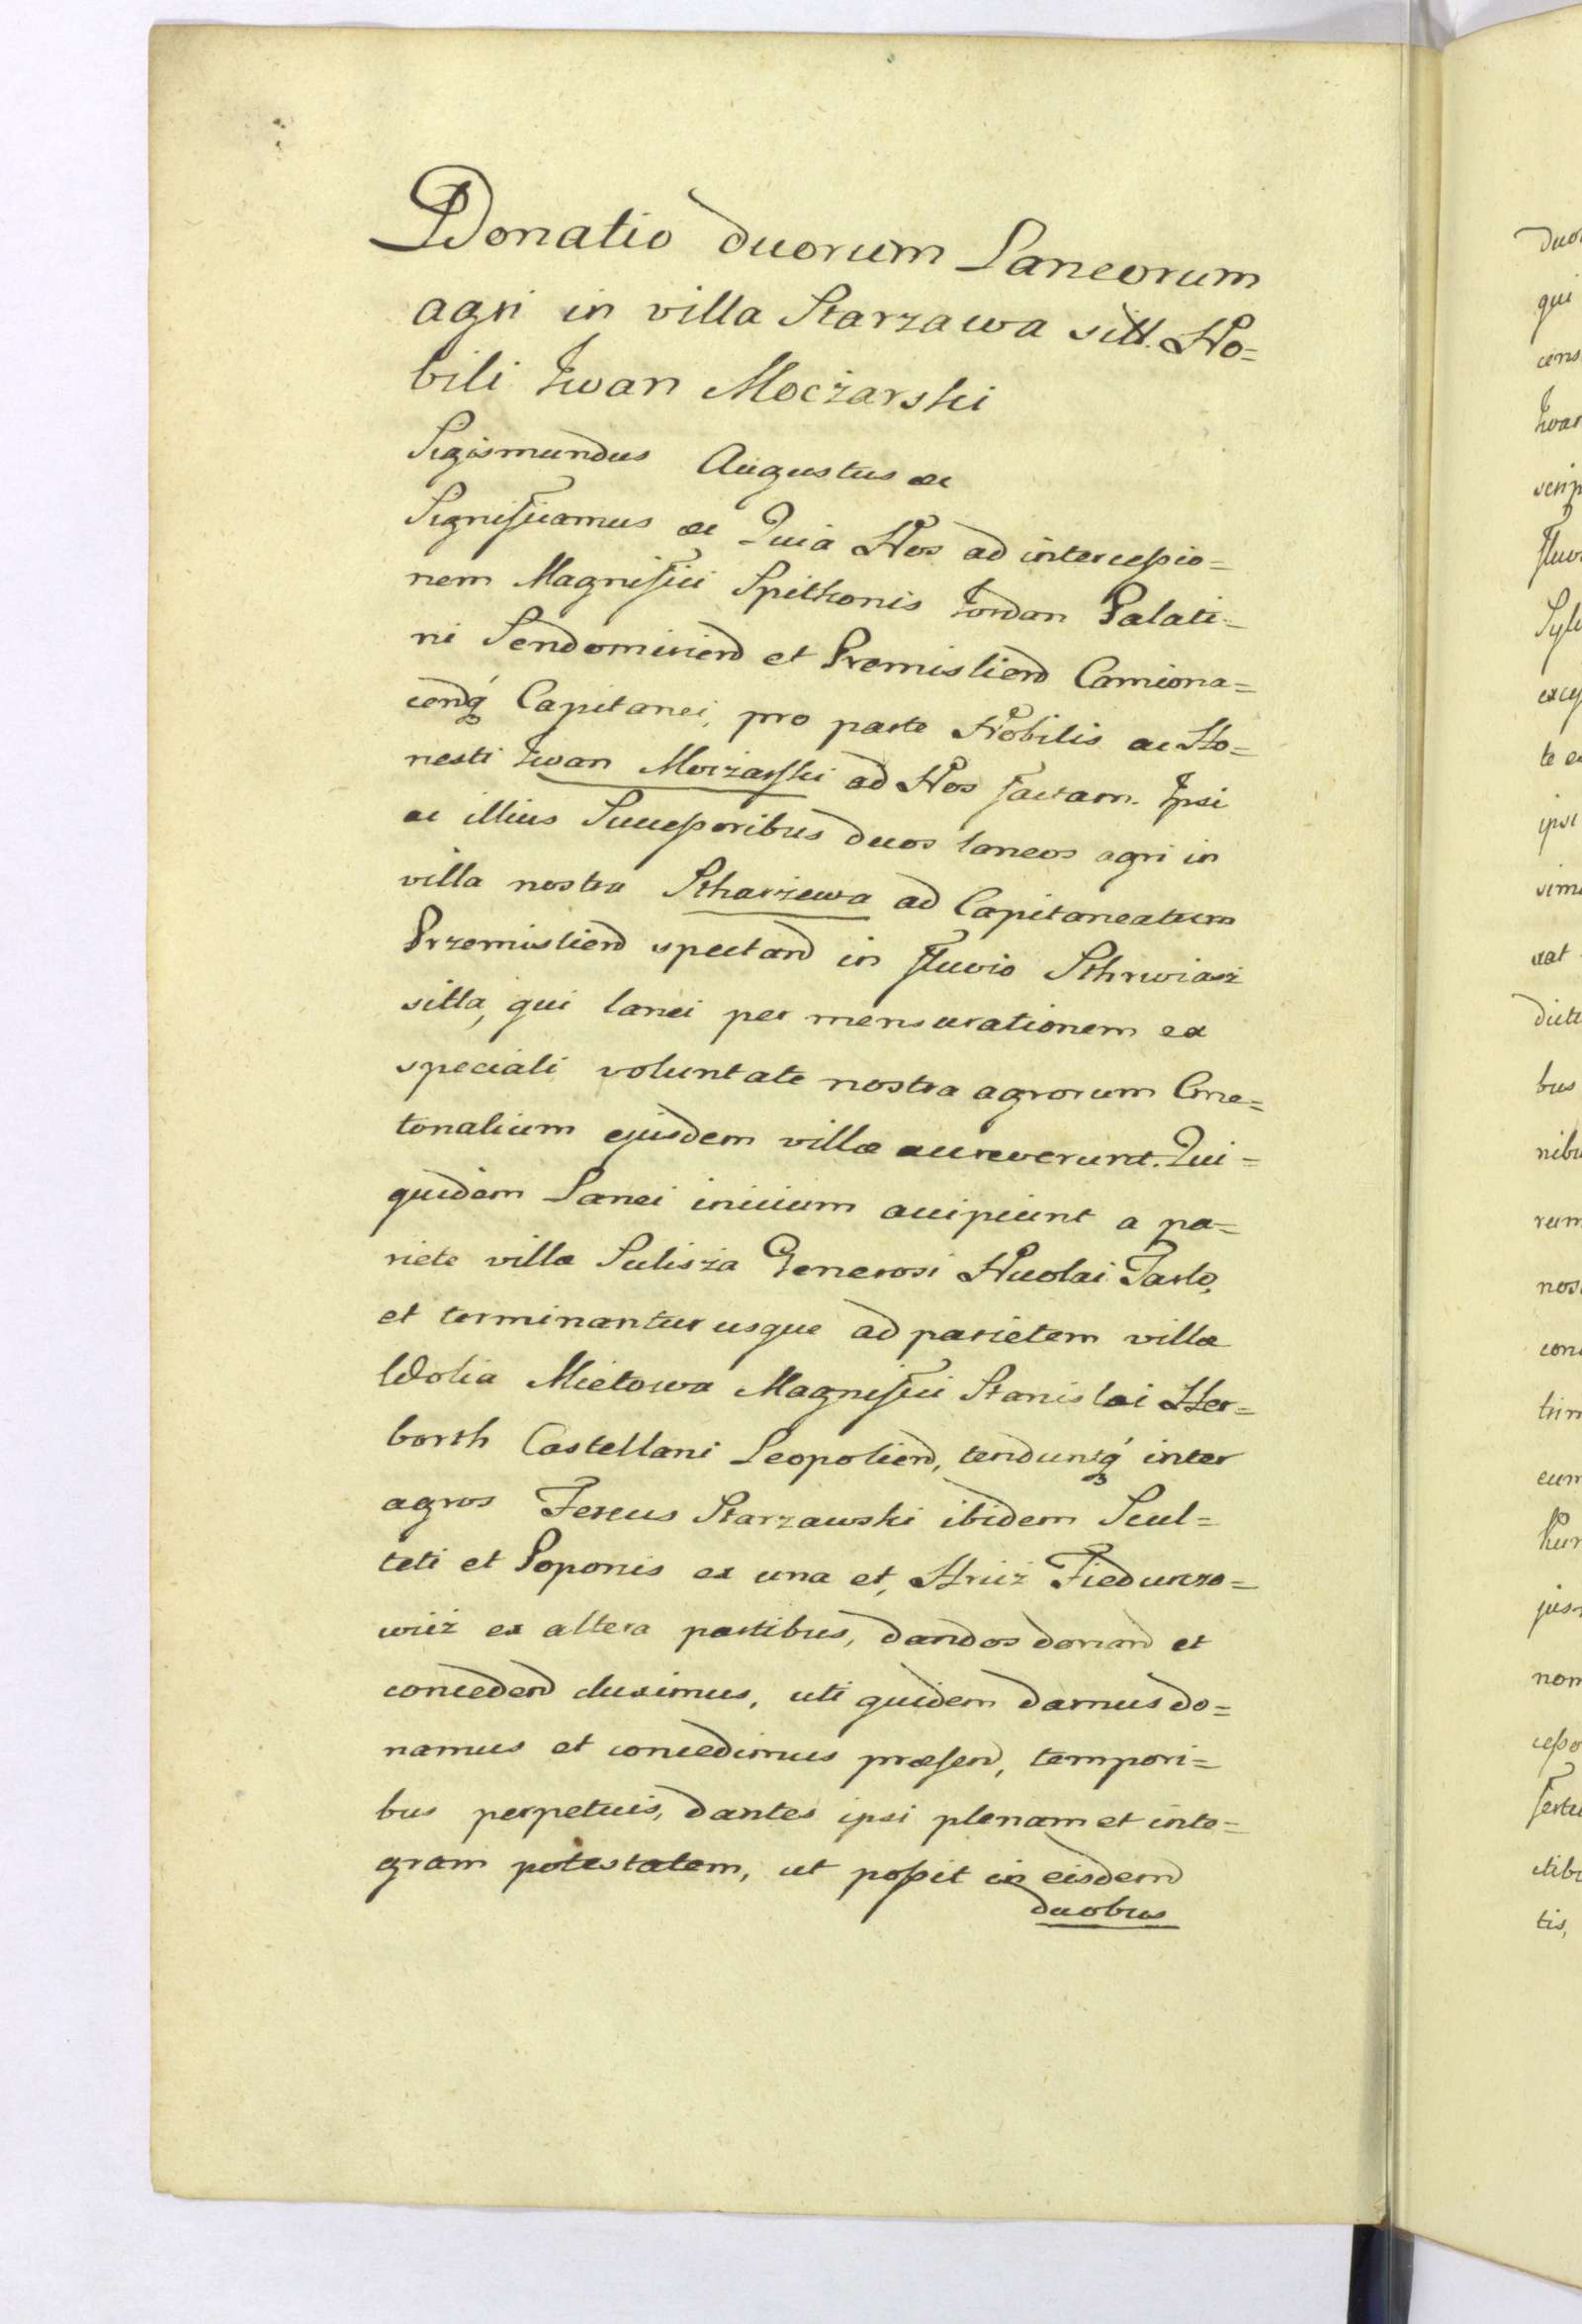 Donatio duorum Laneorum
agri in villa Starzawa sitt. No=
bili Iwan Moczarski
Sigismundus Augustus &c
Significamus &c Quia Nos ad intercessio=
nem Magnifici Spitkonis Jordan Palati=
ni Sendomirien et Premislien Camiona=
cenq Capitanei, pro parte Nobilis ac Ho=
nesti Iwan Moczarski ad Nos factam. Ipsi
ac illius Successoribus duos laneos agri in
villa nostra Stharzewa ad Capitaneatum
Przemislien spectand in fluvio Sthrwiasz
sitta, qui lanei per mensurationem ex
speciali voluntate nostra agrorum Cme=
tonalium ejusdem villæ accreverunt. Qui=
quidem Lanei inicium accipiunt a pa=
riete villæ Sulisza Generosi Nicolai Tarlo,
et terminantur usque ad parietem villæ
Wolia Mietowa Magnifici Stanislai Her=
borth Castellani Leopolien, tenduntq inter
agros Fercus Starzawski ibidem Scul=
teti et Poponis ex una et, Hricz Fiedurczo=
wicz ex altera partibus, dandos donand et
concedend duximus, uti quidem damus do=
namus et concedimus præsen, tempori=
bus perpetuis, dantes ipsi plenam et inte=
gram potestatem, ut possit in eisdem
duobus
duo
qui
cens
Iwan
scrip
fluv
Sylv
excep
te e
ipsi
simi
uat
dict
bus
nibu
rum
nos
con
trim
eum
jus
non
cesso
itib
tis,